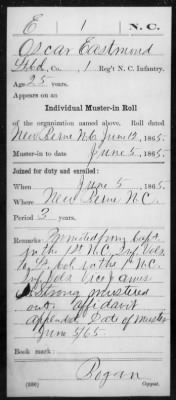 E 1 N.C.
Oscar Eastmond
Co. 1 Reg't N. C. Infantry.
Age 25 years.
Appears on an
Individual Muster-in Roll
of the organization named above. Roll dated
New Berne N.C. June 12, 1865.
Muster-in to date June 5, 1865.
Joined for duty and enrolled:
When June 5, 1865.
Where New Berne N.C.
Period 3 years.
Remarks: Capt
in the 1st N.C. Inf. Vols.
N.C.
Inf Vols vice James
mustered
out. Affidavit
appended Date of muster
June 5/65.
Book mark:
Copyist.